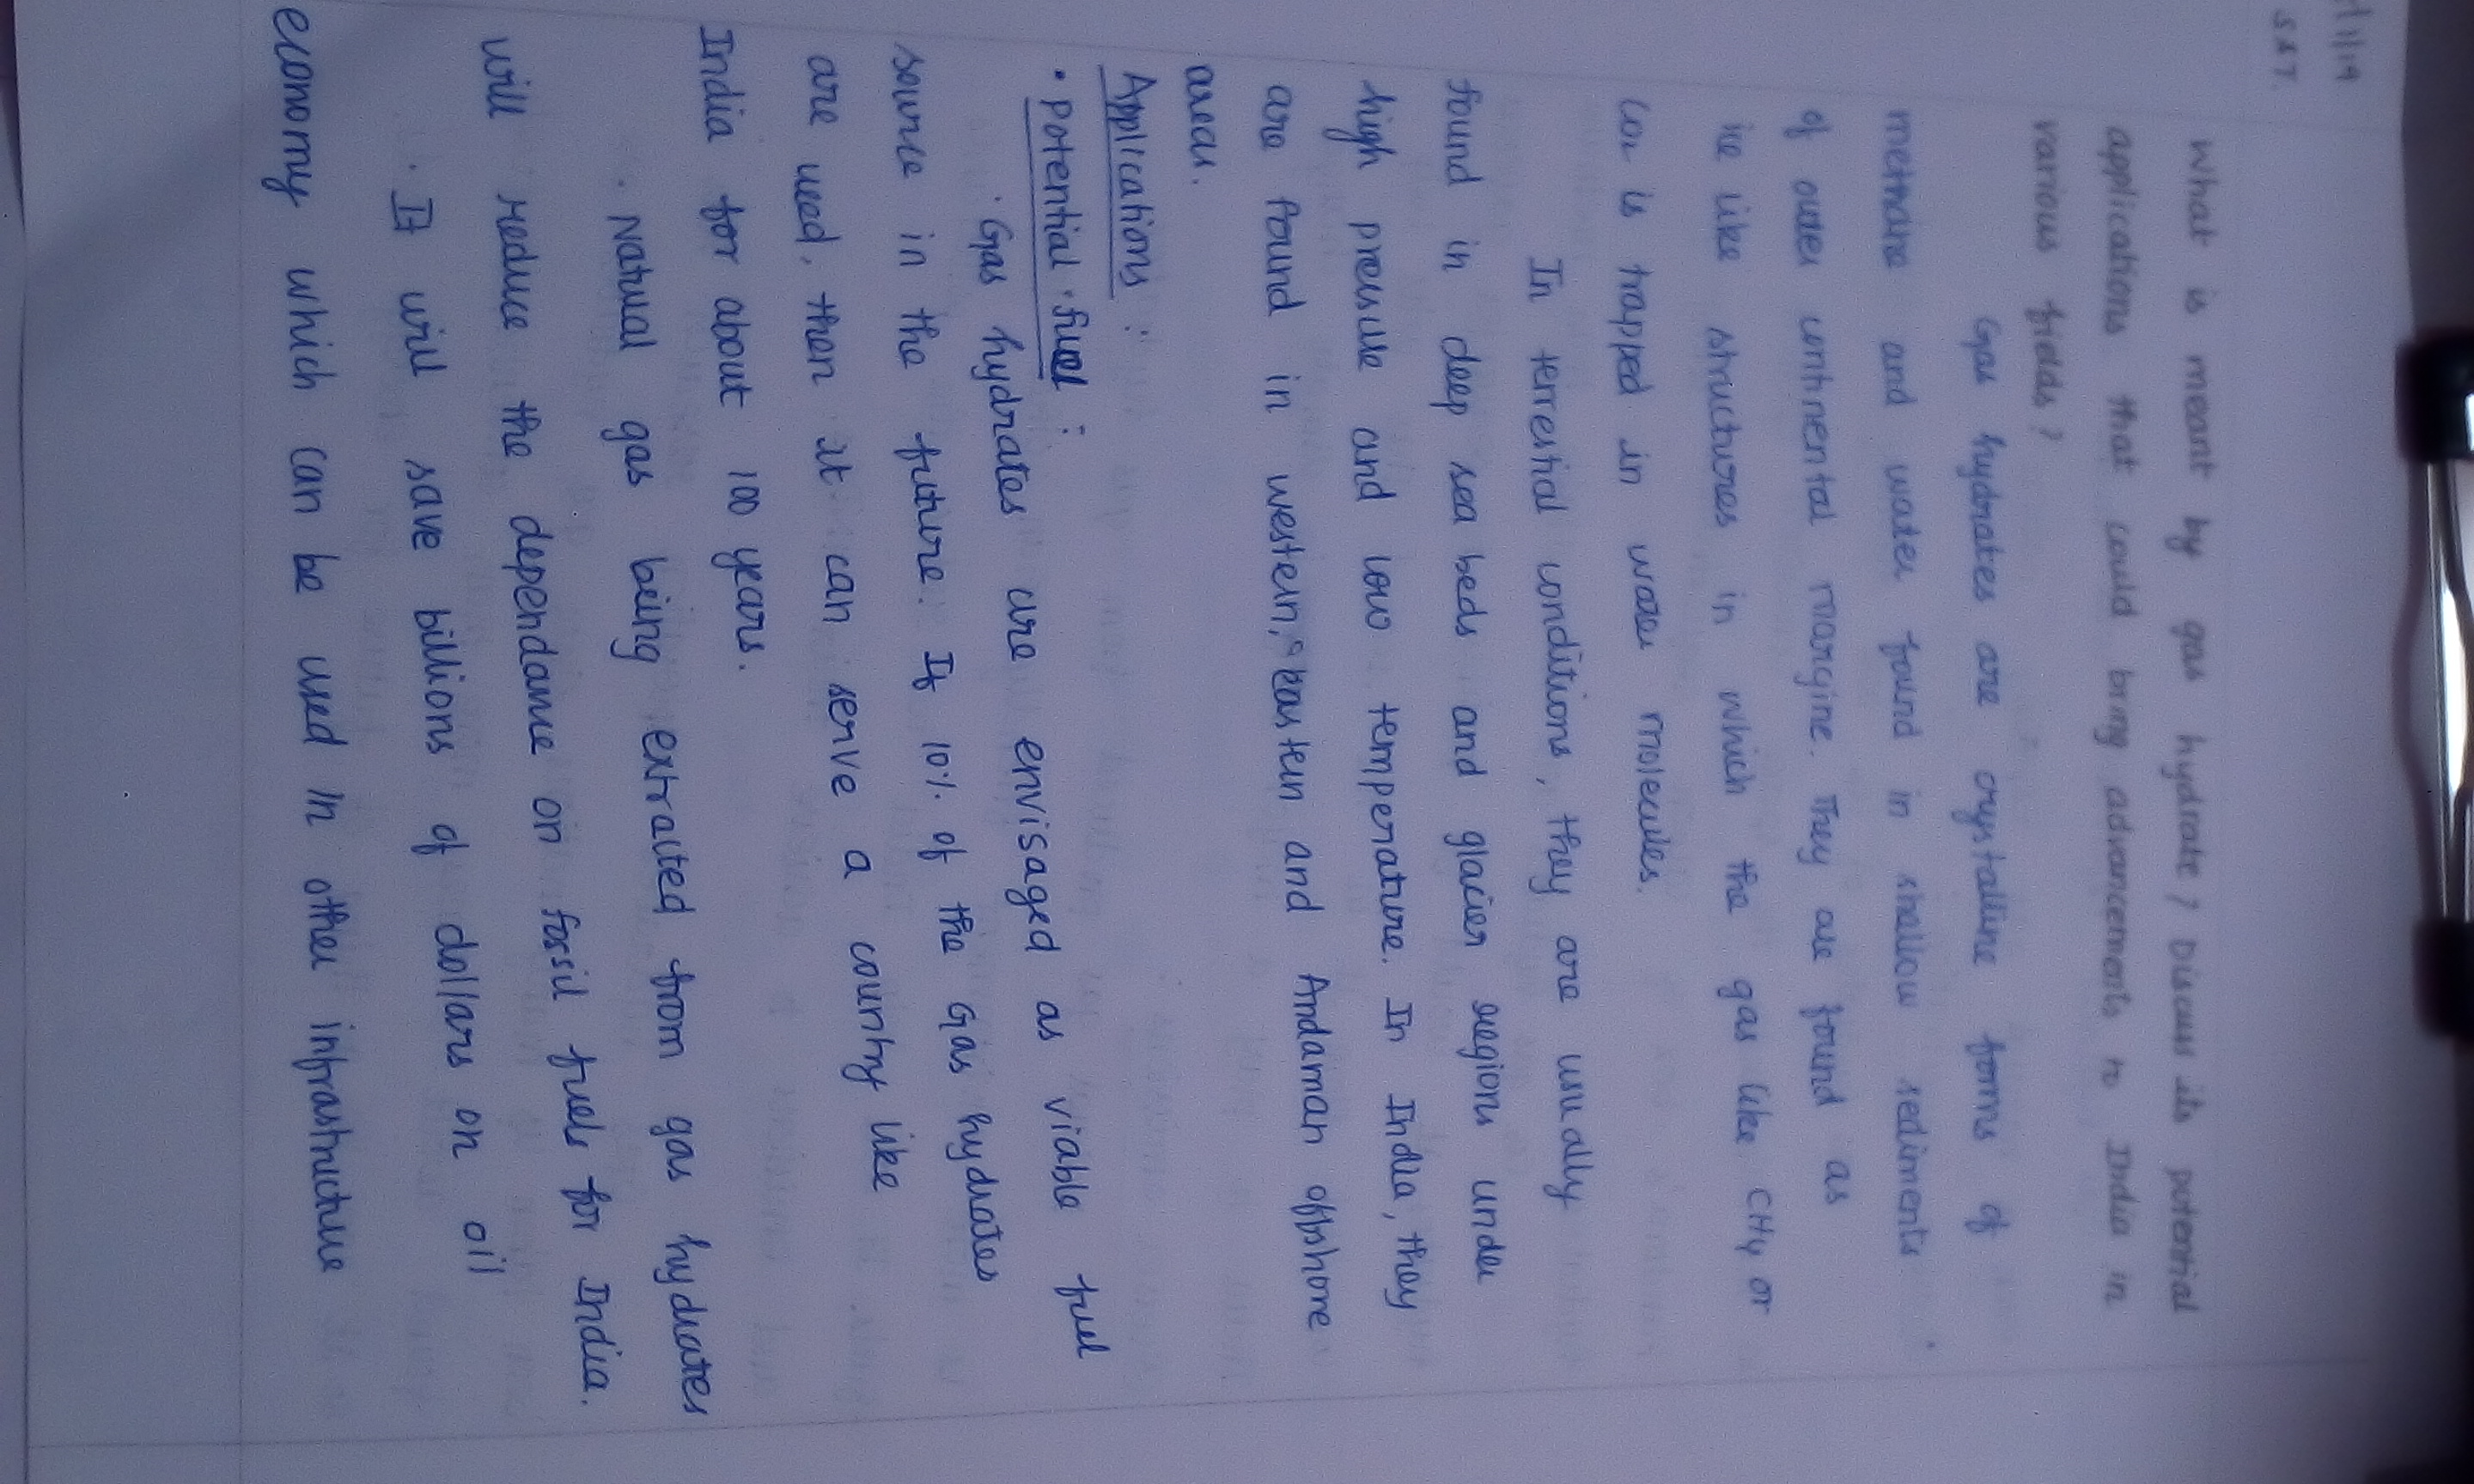 1/1/19
S&T.
What is meant by gas hydrate? Discuss its potential
applications that could bring advancements to India in
various fields?
Gas hydrates are crystalline forms of
methane and water found in shallow sediments
of outer continental margine. They are found as
ice like structures in which the gas like CH4 or
is trapped in water molecules.
In terrestial conditions, they are usually
found in deep sea beds and glacier regions under
high pressure and low temperature. In India, they
are found in western, eastern and Andaman offshore
areas.
Applications :
• Potential fuel :
. Gas hydrates are envisaged as viable fuel
source in the future. If 10% of the Gas hydrates
are used, then it can serve a country like
India for about 100 years.
. Natural gas being extracted from gas hydrates
will reduce the dependance on fossil fuels for India.
. It will save billions of dollars on oil
economy which can be used in other infrastructure